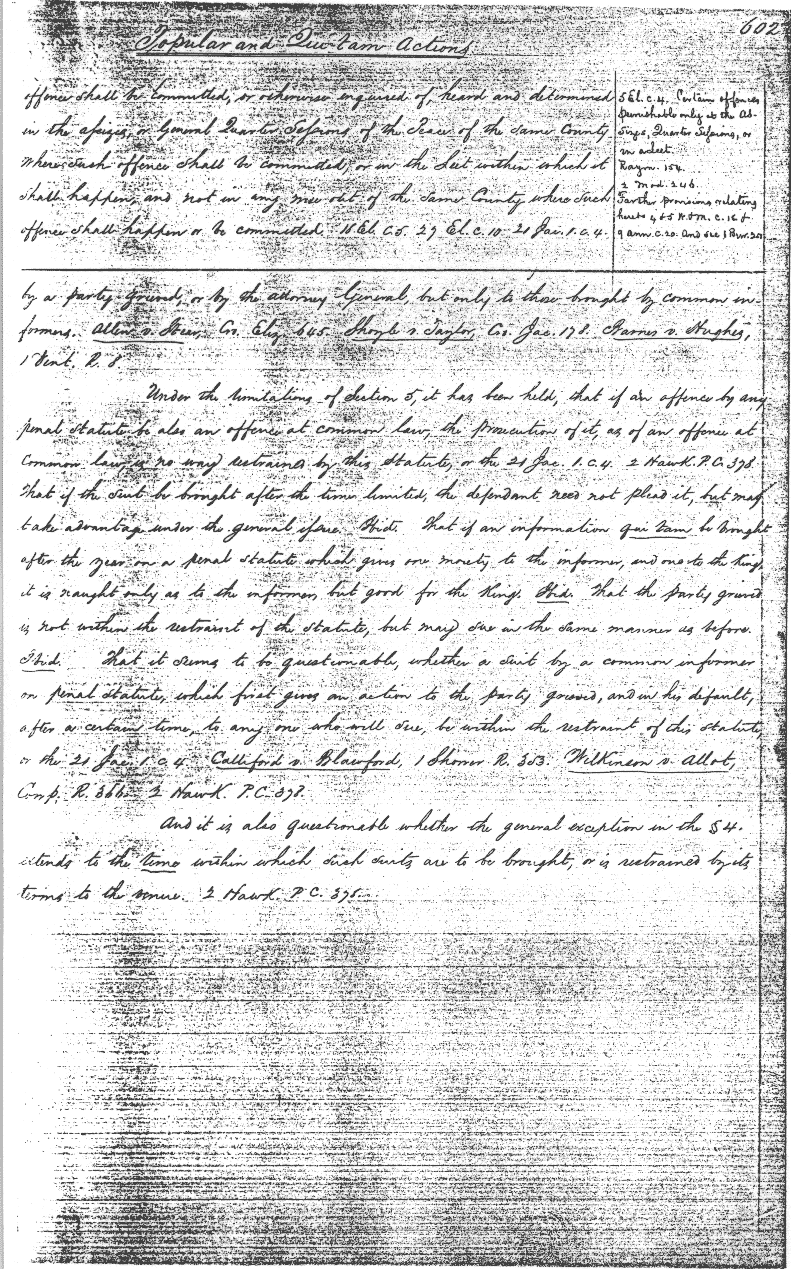 602
Popular and Qui-tam Actions
offence shall be committed, or otherwise enquired of, heard and determined
in the assizes, or General Quarter Sessions of the Peace of the same County
where such offence shall be committed, or in the Leet within which it
shall happen, and not in any wise out of the same County where such
offence shall happen or be committed. 18 El. c. 5. 27 El. c. 10. 21 Jac. 1. c. 4.
5 El. c. 4. Certain offences
punishable only at the As-
sizes, Quarter Sessions, or
in a leet.
Raym. 154.
2 Mod. 246.
Farther provisions relating
hereto 4 & 5 W. & M. c. 18 &
9 Ann. c. 20. And see 1 Burr.
by a party grieved, or by the attorney General, but only to those brought by common in-
formers. Allen v. Steer, Cro. Eliz. 645. Shoyle v. Taylor, Cro. Jac. 178. Harris v. Hughes,
1 Vent. R. 8.
Under the limitations of Section 5, it has been held, that if an offence by any
penal statute be also an offence at common law, the prosecution of it, as of an offence at
Common law, is no way restrained by this Statute, or the 21 Jac. 1. c. 4. 2 Hawk. P.C. 398.
That if the suit be brought after the time limited, the defendant need not plead it, but may
take advantage under the general issue. Ibid. That if an information qui tam be brought
after the year on a penal statute which gives one moiety to the informer, and one to the King,
it is naught only as to the informer, but good for the King. Ibid. That the party grieved
is not within the restraint of the statute, but may sue in the same manner as before.
Ibid. That it seems to be questionable, whether a suit by a common informer
on penal statute, which first gives an action to the party grieved, and in his default,
after a certain time, to any one who will sue, be within the restraint of this statute,
or the 21 Jac. 1. c. 4. Calliford v. Blawford, 1 Shower R. 353. Wilkinson v. Allot,
Cowp. R. 366. 2 Hawk. P.C. 398.
And it is also questionable whether the general exception in the § 4.
extends to the time within which such suits are to be brought, or is restrained by its
terms to the venue. 2 Hawk. P.C. 398.